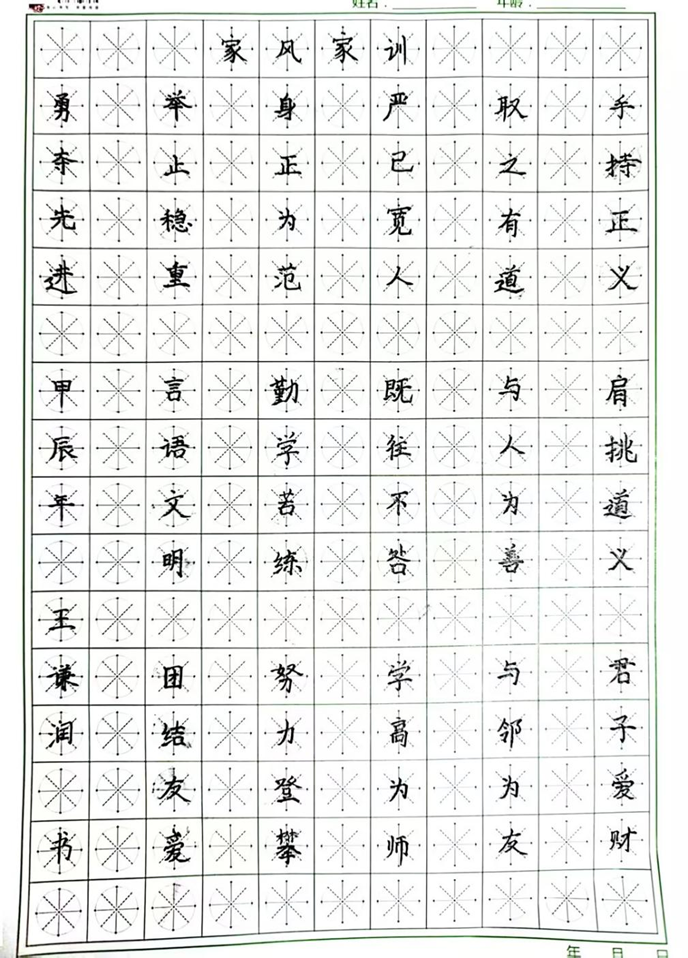 姓名：
年龄：
家风家训
手持正义 肩挑道义 君子爱财
取之有道 与人为善 与邻为友
严已宽人 既往不咎 学高为师
身正为范 勤学苦练 努力登攀
举止稳重 言语文明 团结友爱
勇夺先进 甲辰年 王谦润 书
年 月 日